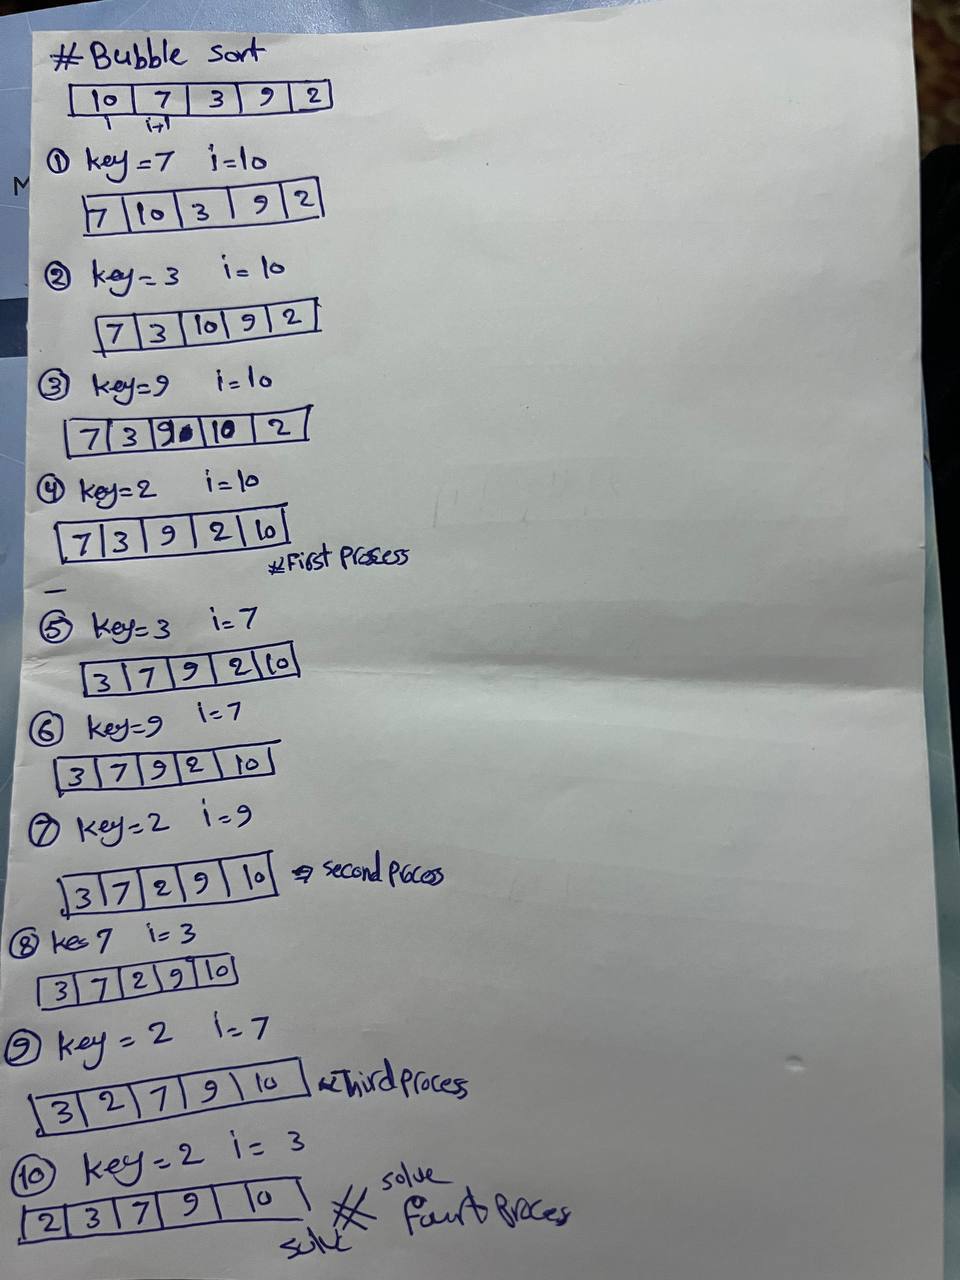 # Bubble sort
10 7 3 9 2
i i+1
① key=7 i=10
7 10 3 9 2
② key=3 i=10
7 3 10 9 2
③ key=9 i=10
7 3 9 10 2
④ key=2 i=10
7 3 9 2 10
*First Process
⑤ key=3 i=7
3 7 9 2 10
⑥ key=9 i=7
3 7 9 2 10
⑦ key=2 i=9
3 7 2 9 10 → second Process
⑧ i=3
3 7 2 9 10
⑨ key=2 i=7
3 2 7 9 10 * Third Process
⑩ key=2 i=3
solve
2 3 7 9 10 *